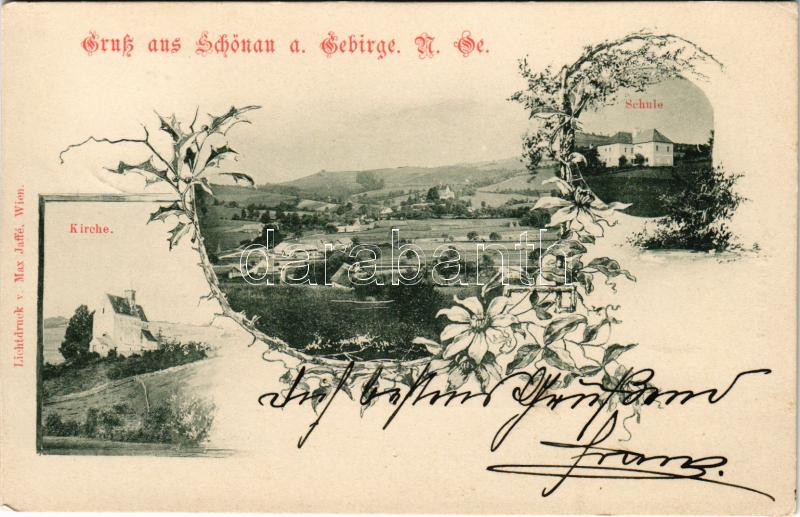 Gruß aus Schönau a. Gebirge. N. Oe.
Schule
Kirche.
Lichtdruck v. Max Jaffé, Wien.
darabanth
Dich bestens Grüßend
Franz.